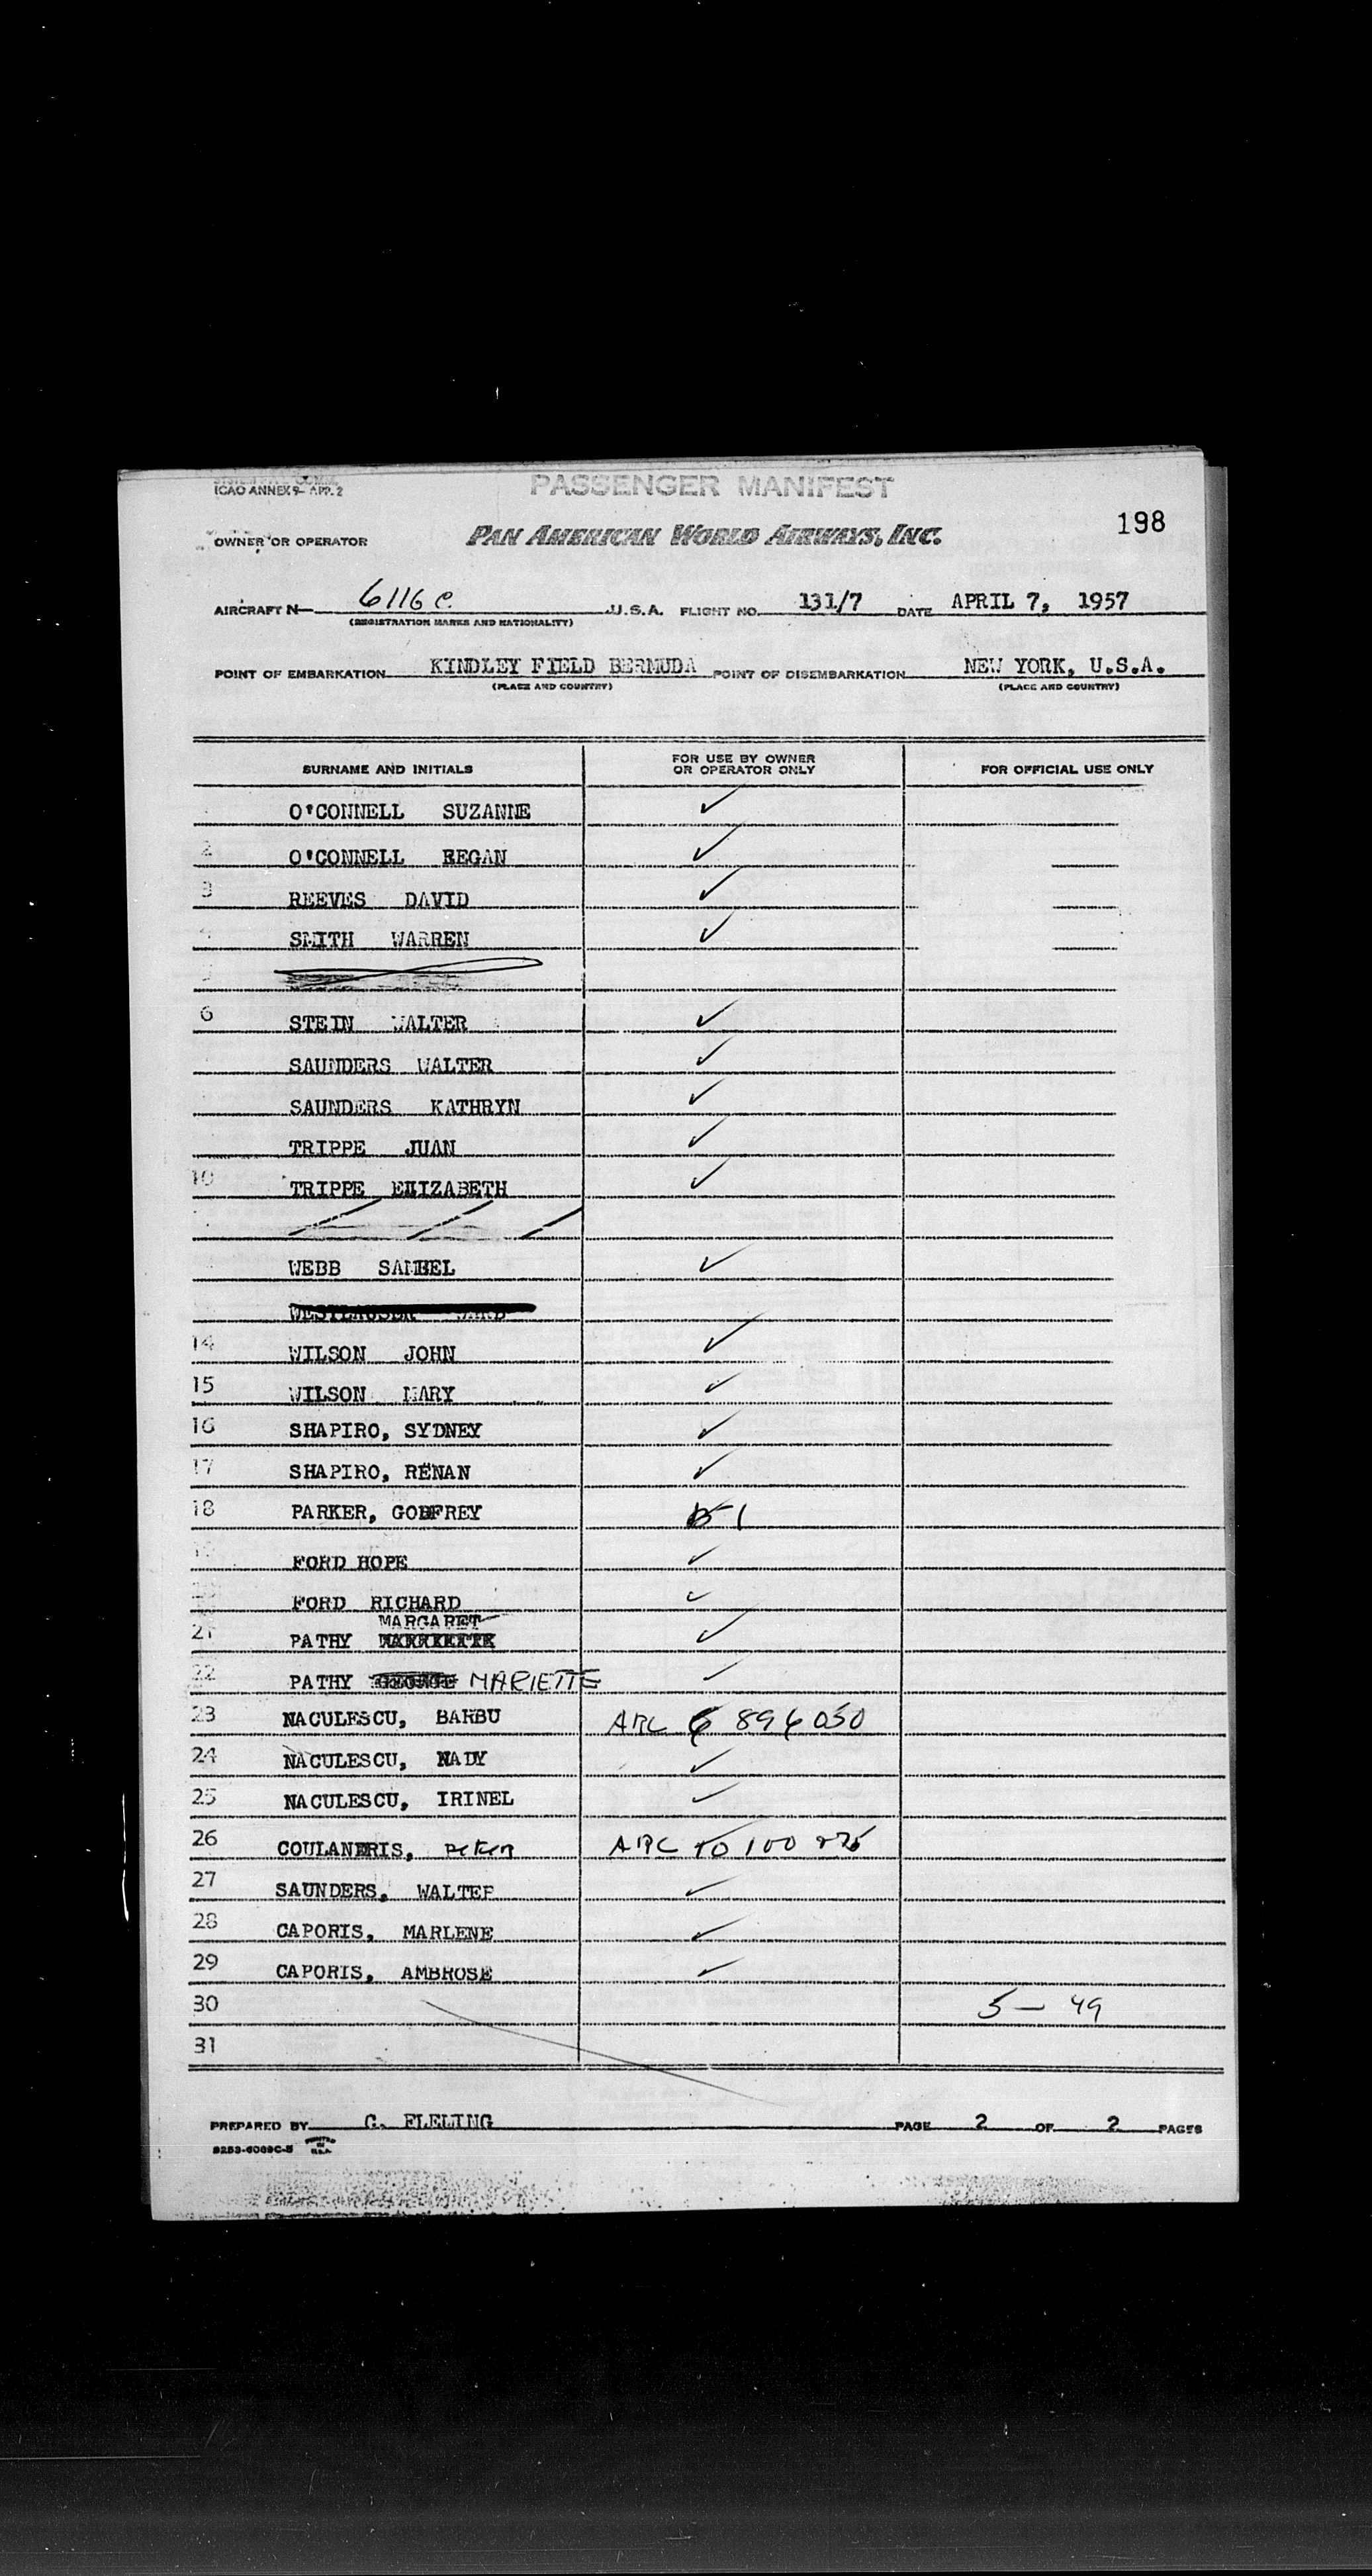 ICAO ANNEX 9- APP. 2
PASSENGER MANIFEST
198
OWNER OR OPERATOR PAN AMERICAN WORLD AIRWAYS, INC.
AIRCRAFT N— 6116 C U.S.A. FLIGHT NO. 131/7 DATE APRIL 7, 1957
(REGISTRATION MARKS AND NATIONALITY)
POINT OF EMBARKATION KINDLEY FIELD BERMUDA POINT OF DISEMBARKATION NEW YORK, U.S.A.
(PLACE AND COUNTRY) (PLACE AND COUNTRY)
SURNAME AND INITIALS FOR USE BY OWNER OR OPERATOR ONLY FOR OFFICIAL USE ONLY
O'CONNELL SUZANNE ✓
2 O'CONNELL REGAN ✓
3 REEVES DAVID ✓
4 SMITH WARREN ✓
6 STEIN WALTER ✓
SAUNDERS WALTER ✓
SAUNDERS KATHRYN ✓
TRIPPE JUAN ✓
10 TRIPPE ELIZABETH ✓
WEBB ✓
14 WILSON JOHN ✓
15 WILSON MARY ✓
16 SHAPIRO, SYDNEY ✓
17 SHAPIRO, RENAN ✓
18 PARKER, GODFREY B-1
FORD HOPE ✓
FORD RICHARD ✓
MARGARET
21 PATHY ✓
22 PATHY GEORGE MARIETTE ✓
23 NACULESCU, BARBU ARC 6 896 050
24 NACULESCU, NADY ✓
25 NACULESCU, IRINEL ✓
26 COULANDRIS, PETER ARC 10 100
27 SAUNDERS, WALTER ✓
28 CAPORIS, MARLENE ✓
29 CAPORIS, AMBROSE ✓
30 5 — 49
31
PREPARED BY C. FLELING PAGE 2 OF 2 PAGES
PRINTED IN U.S.A.